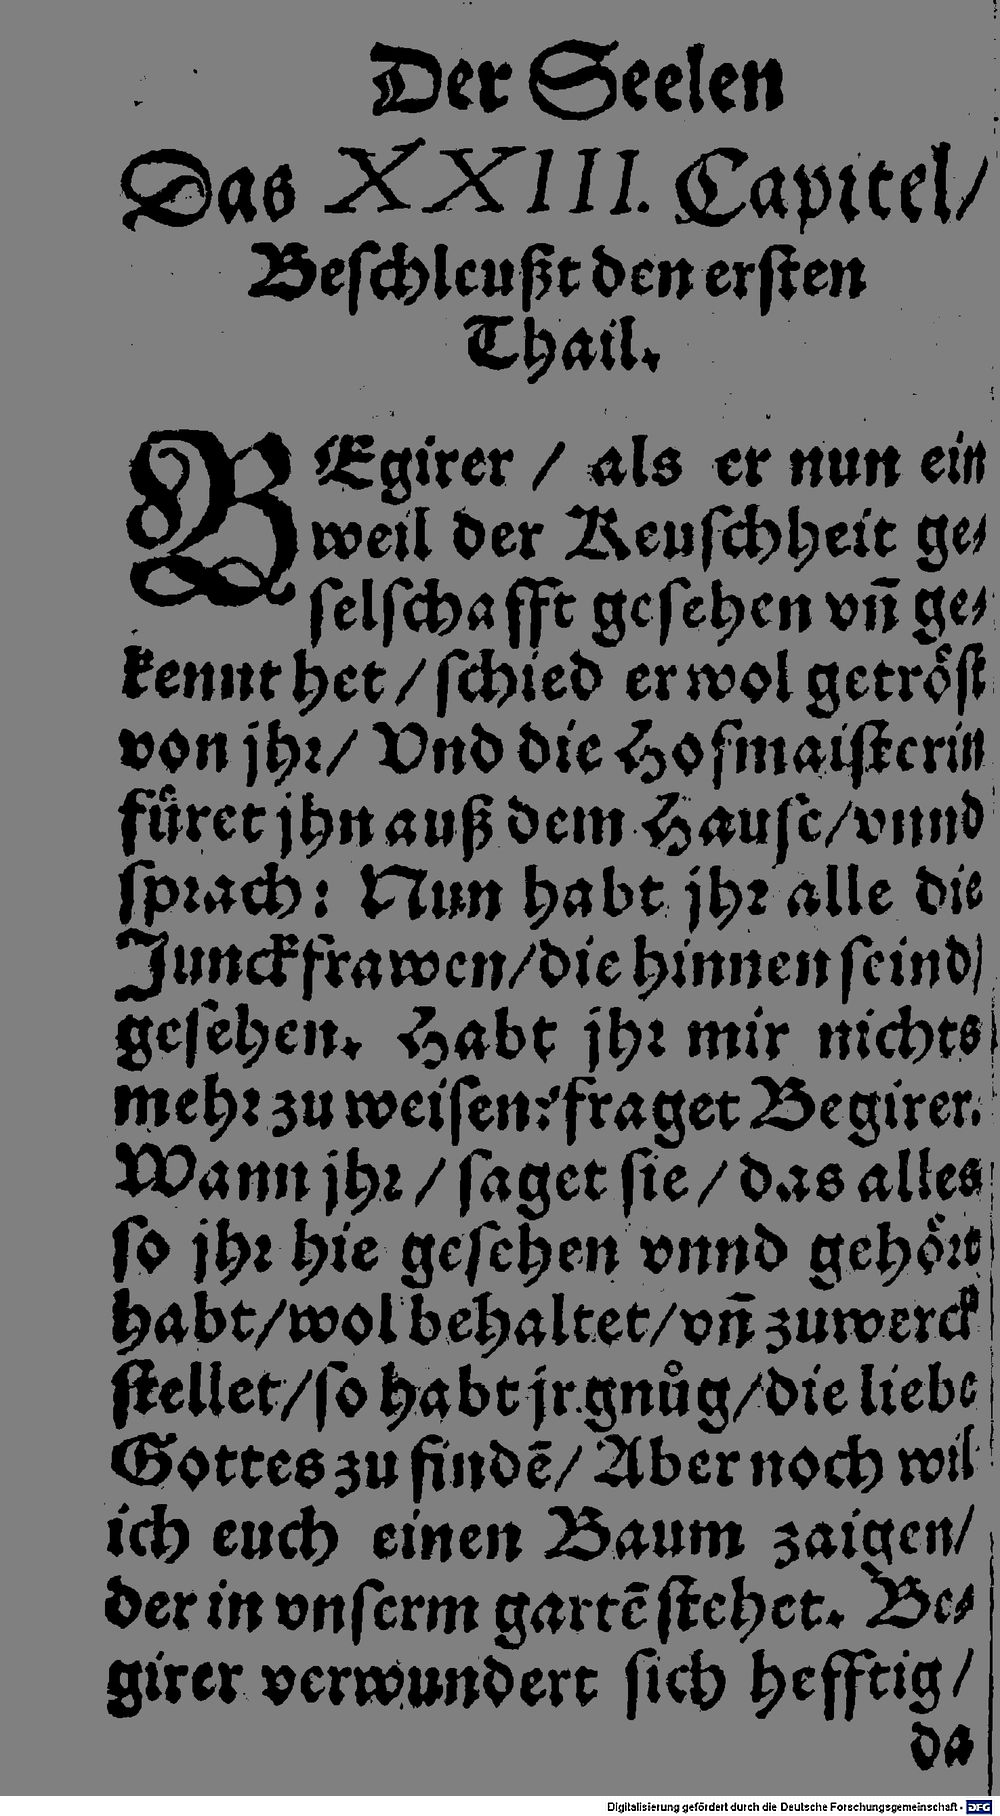 Der Seelen
Das XXIII. Capitel/
Beschleußt den ersten
Thail.
BEgirer / als er nun ein
weil der Keuschheit ge-
selschafft gesehen vñ ge-
kennt het / schied er wol getroͤst
von jhr / Vnd die Hofmaisterin
fuͤret jhn auß dem Hause / vnnd
sprach: Nun habt jhr alle die
Junckfrawen / die hinnen seind /
gesehen. Habt jhr mir nichts
mehr zu weisen? fraget Begirer.
Wann jhr / saget sie / das alles
so jhr hie gesehen vnnd gehoͤrt
habt / wol behaltet / vñ zuwerck
stellet / so habt jr gnuͦg / die liebe
Gottes zu findẽ / Aber noch wil
ich euch einen Baum zaigen /
der in vnserm gartẽ stehet. Be-
girer verwundert sich hefftig /
da
Digitalisierung gefördert durch die Deutsche Forschungsgemeinschaft - DFG